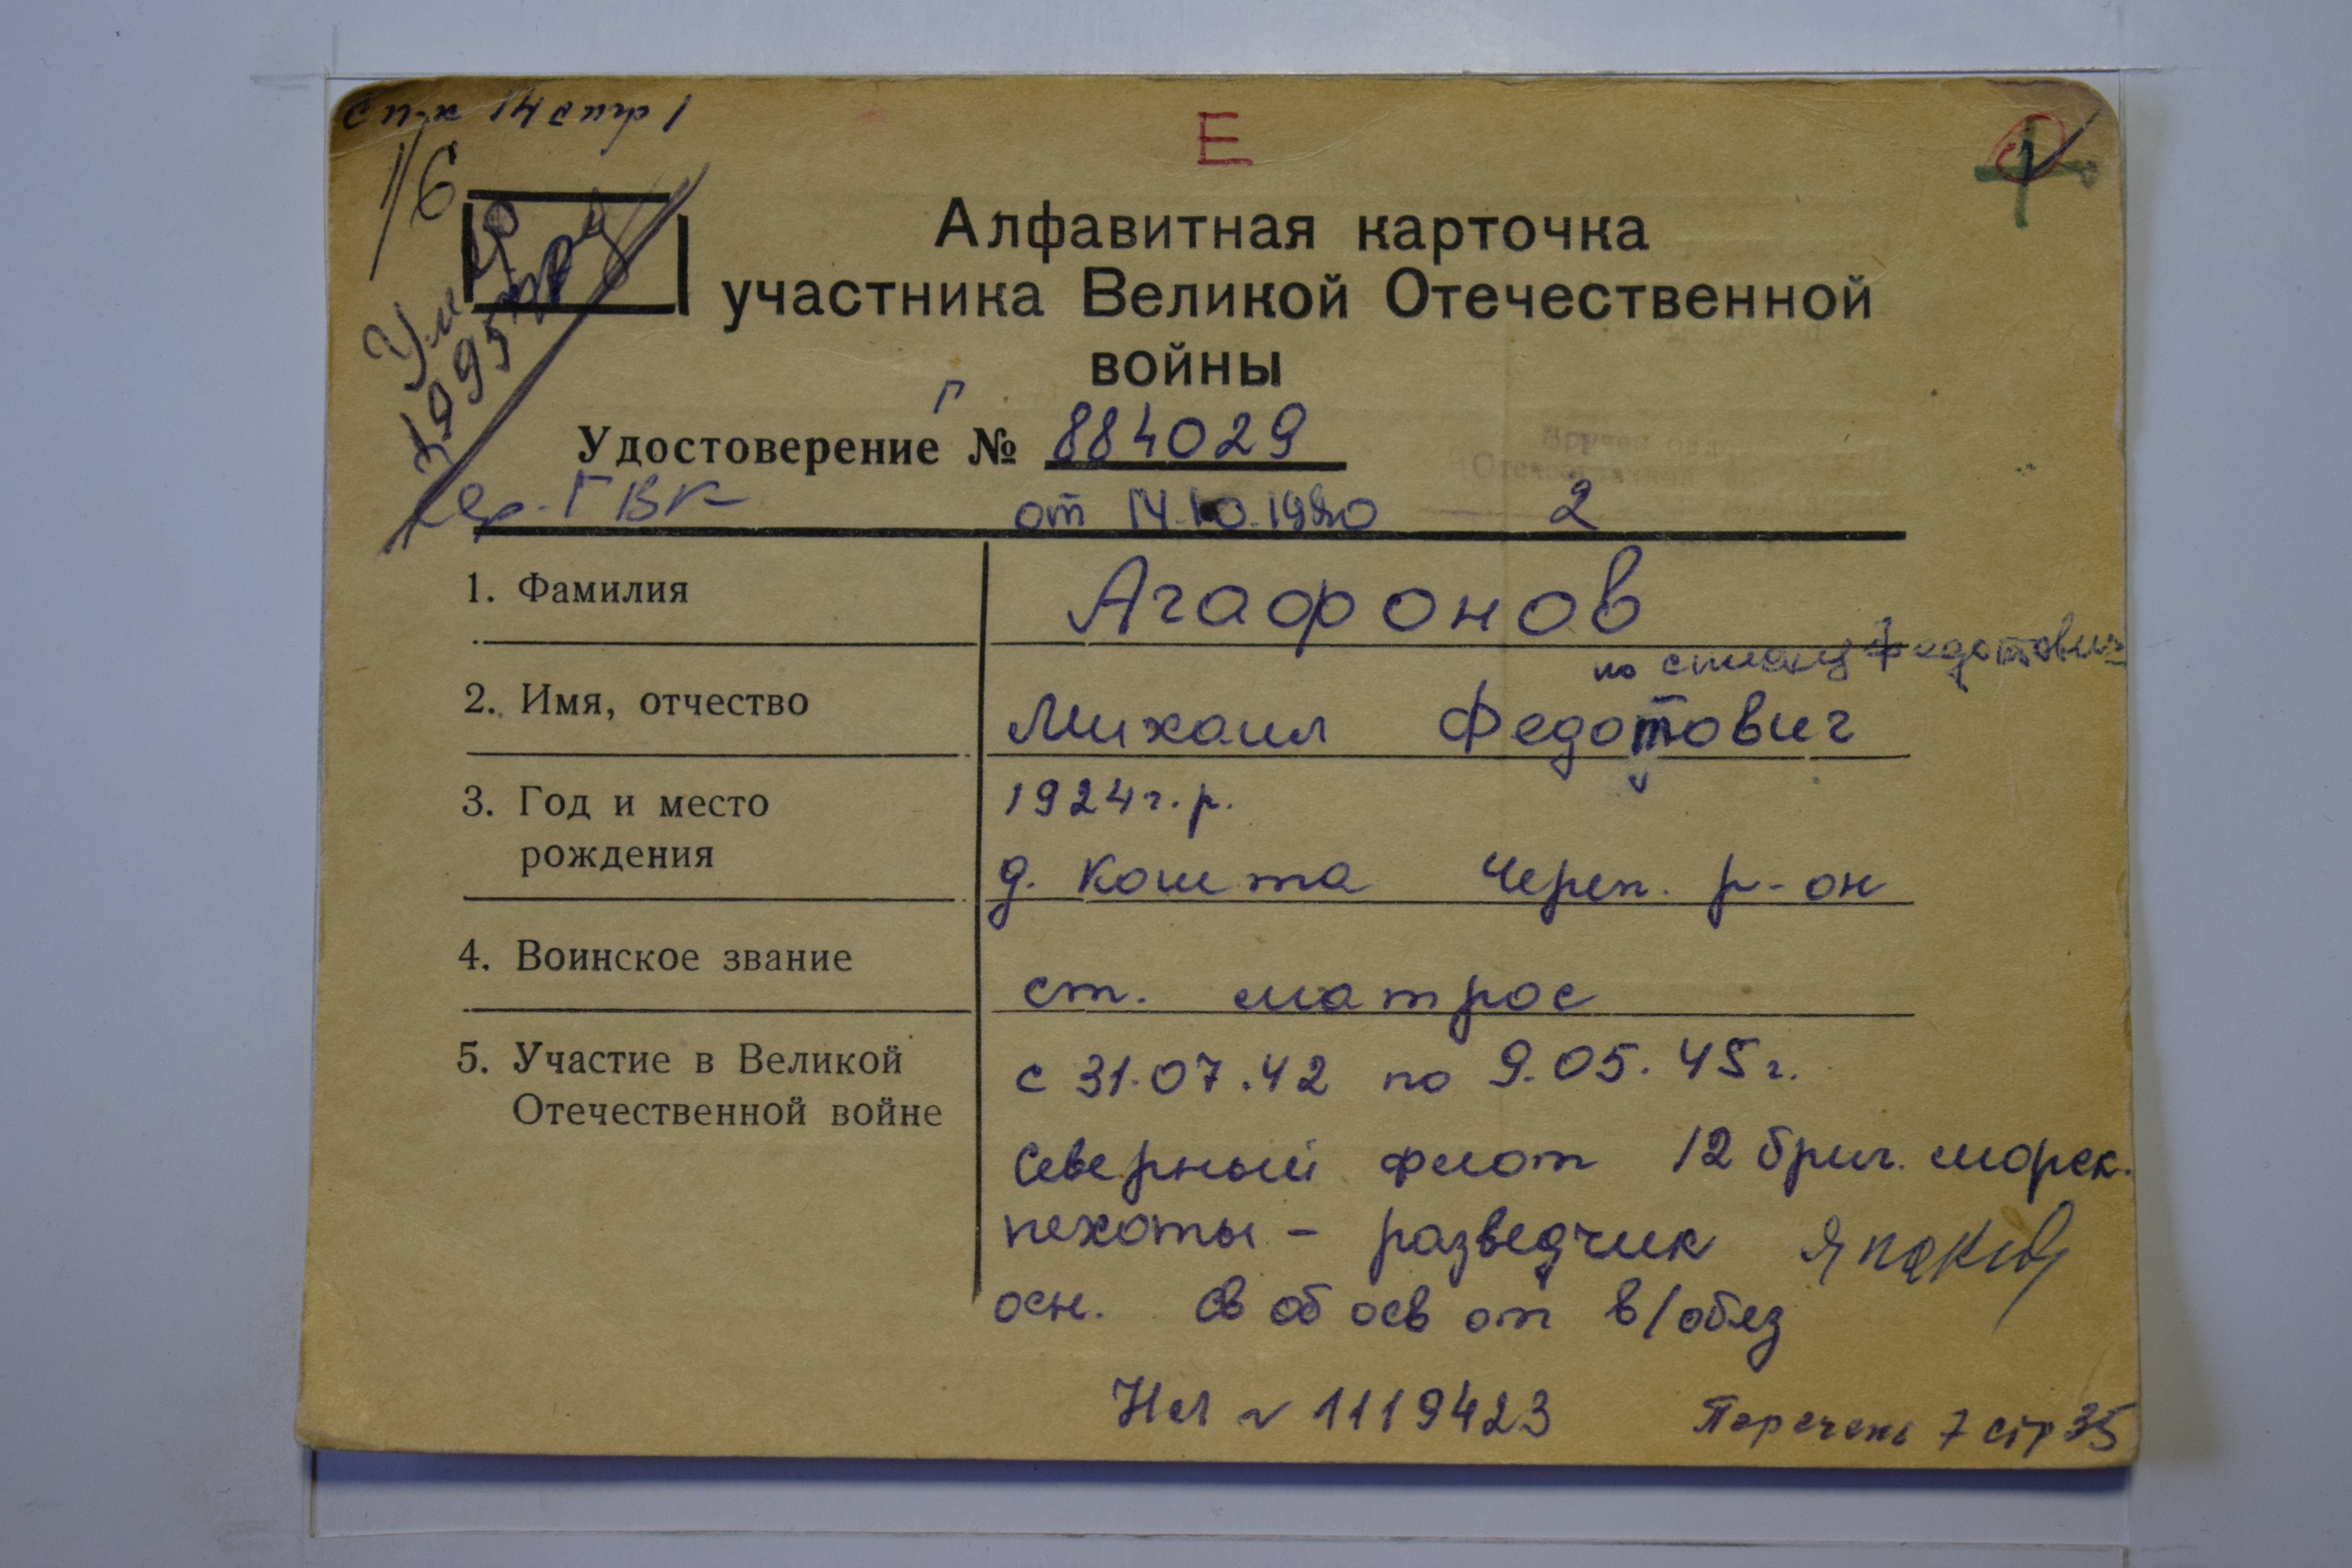 сп-к 14 стр 1
Е
1/6
Умер
1995
Алфавитная карточка
участника Великой Отечественной
войны
Г
Удостоверение № 884029
ГВК
от 14.10.1980 2
1. Фамилия Агафонов
по списку Федотович
2. Имя, отчество Михаил Федотович
3. Год и место 1924 г.р.
рождения д. Кошта Череп. р-он
4. Воинское звание ст. матрос
5. Участие в Великой с 31.07.42 по 9.05.45 г.
Отечественной войне
Северный флот 12 бриг. морск.
пехоты - разведчик
осн. св об осв от в/обяз
№ 1119423 Перечень 7 стр 35